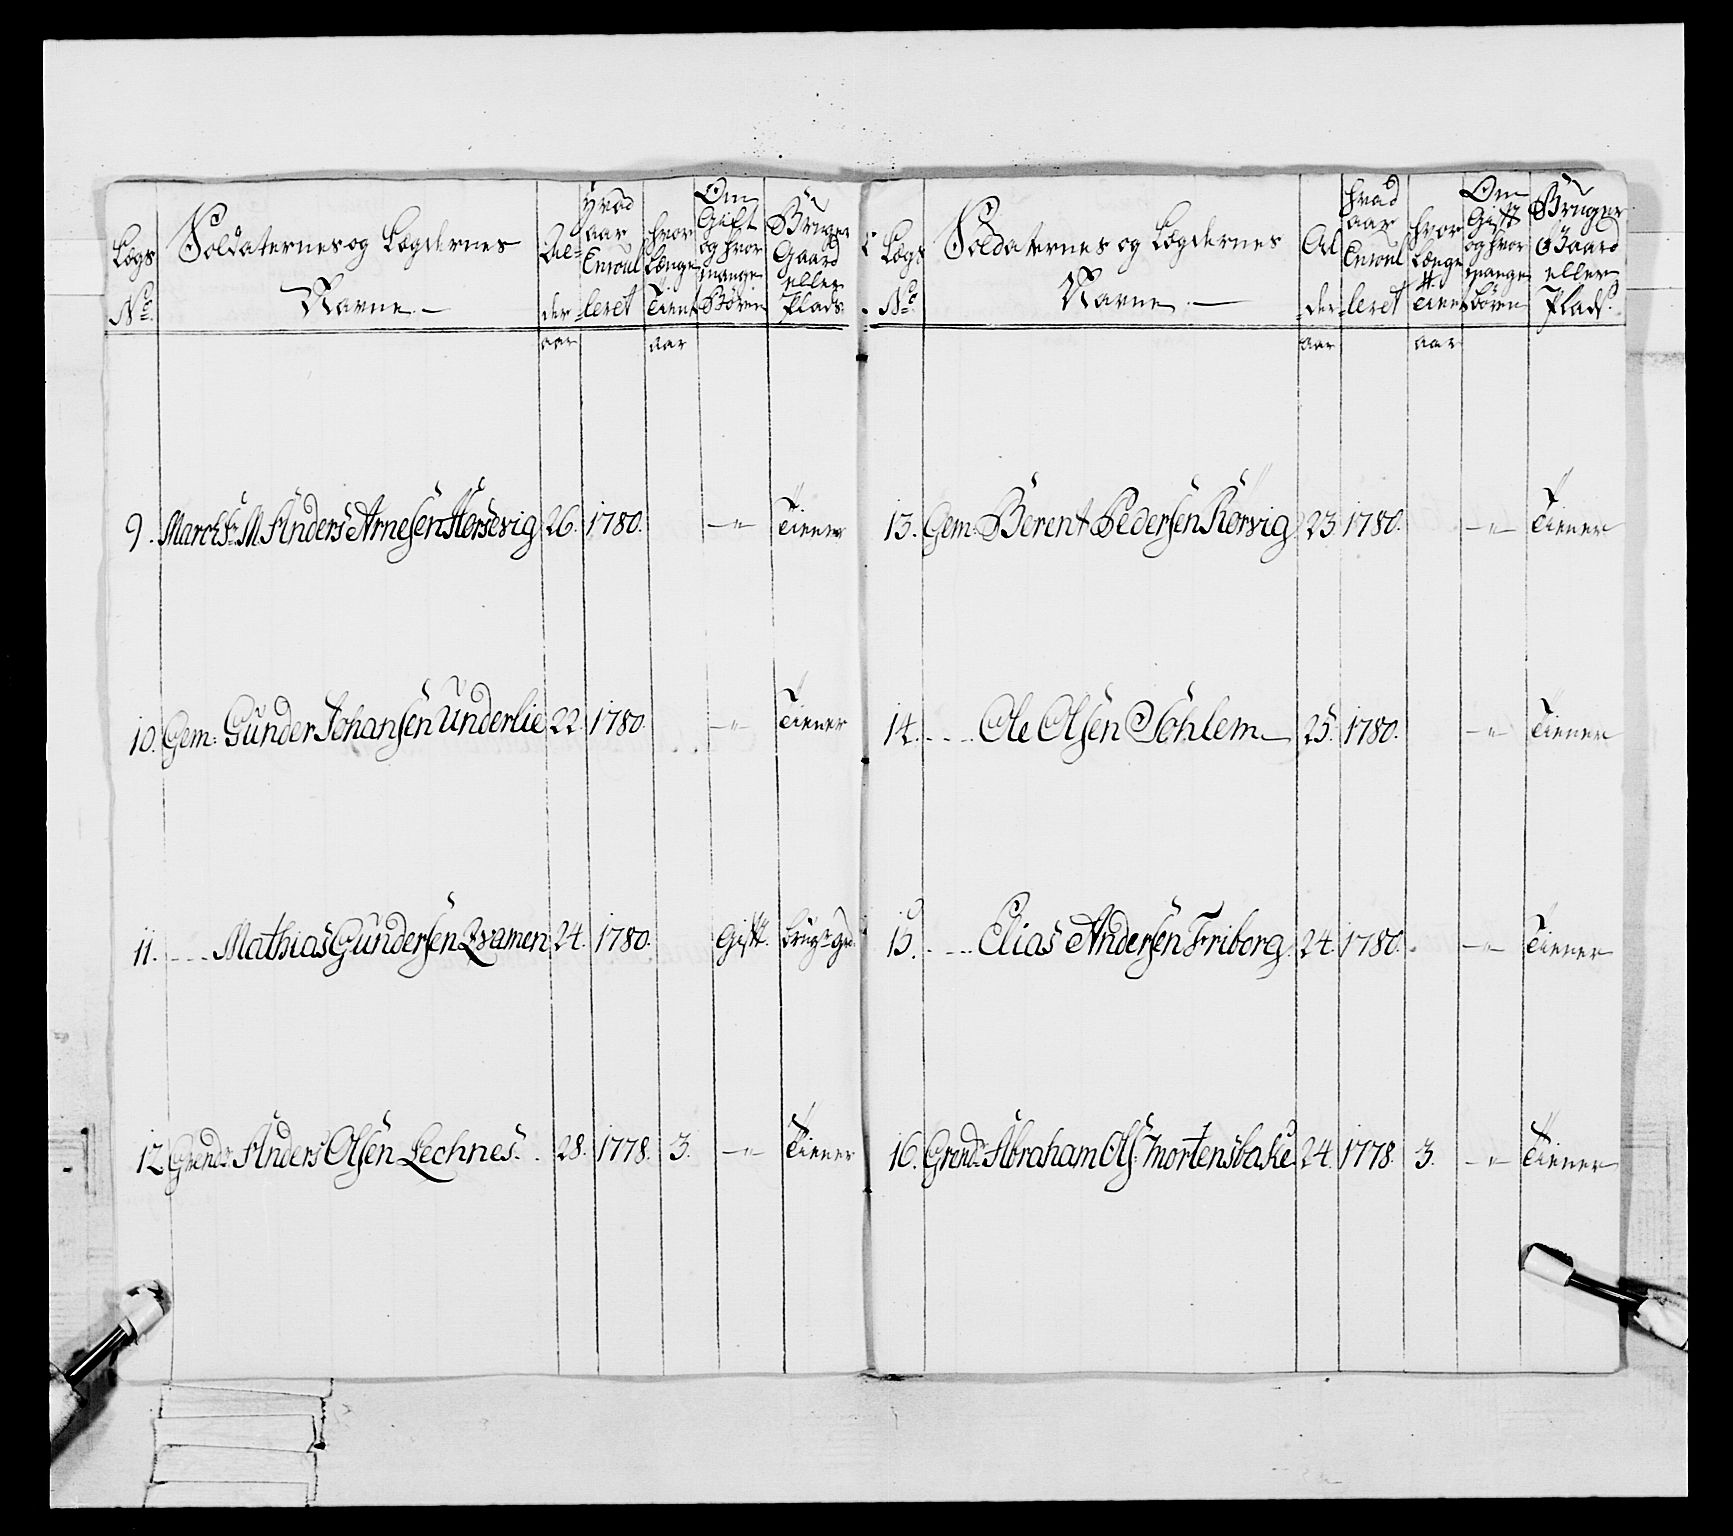 Lægs No. | Soldaternes og Lægdernes Navne | Alder aar | Hvad aar Enroulleret | hvor længe tient aar | Om Gift og hvor mange Børen | Bruger Gaard eller Plads
9. Anders Arnesen Hersevig 26. 1780. —"— Tiener
10. Gem: Gunder Johansen Underlie 22. 1780. —"— Tiener
11. - - - Mathias Gundersen Qvamen 24. 1780. Gift.
12. Grend: Anders Olsen Lechnes. 28. 1778. 3. —"— Tiener
Lægs No. | Soldaternes og Lægdernes Navne | Alder aar | hvad aar Enroulleret | hvor længe tient aar | Om Gift og hvor mange børen | Bruger Gaard eller Plads.
13. Gem: Berent Pedersen Rørvig 23. 1780. —"— Tiener
14. - - - Ole Olsen Söhlem 25. 1780. —"— Tiener
15. - - - Elias Andersen Friborg 24. 1780. —"— Tiener
16. Grend: Abraham Ols: Mortensbake 24. 1778. 3. —"— Tiener